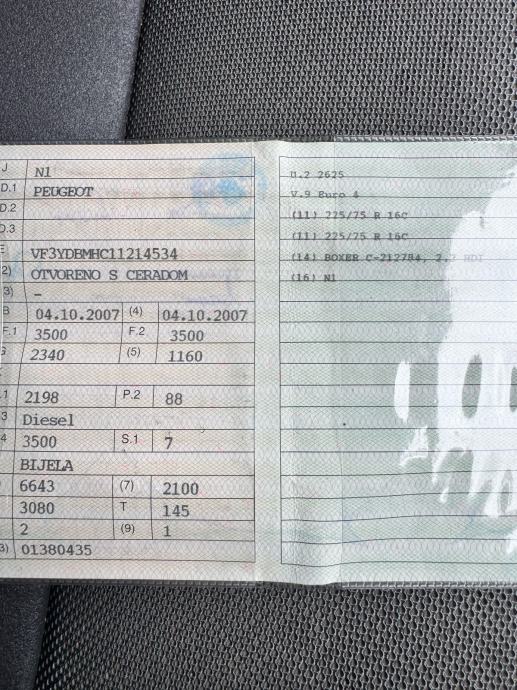 J N1
D.1 PEUGEOT
D.2
D.3
E VF3YDBMHC11214534
2) OTVORENO S CERADOM
3) –
B 04.10.2007 (4) 04.10.2007
F.1 3500 F.2 3500
G 2340 (5) 1160
.1 2198 P.2 88
3 Diesel
4 3500 S.1 7
BIJELA
6643 (7) 2100
3080 T 145
2 (9) 1
3) 01380435
U.2 2625
V.9 Euro 4
(11) 225/75 R 16C
(11) 225/75 R 16C
(14) BOXER C-212784, 2,2 HDI
(16) N1